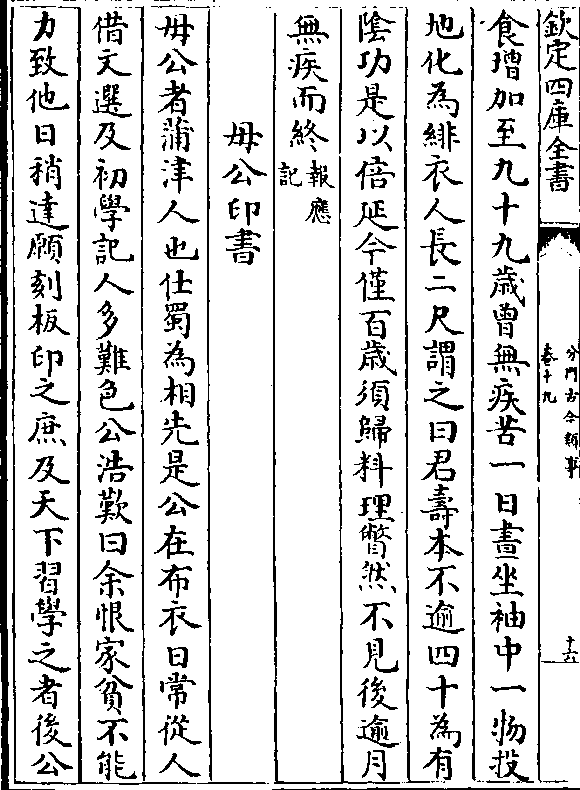 欽定四庫全書
分門古今類事
卷十九
十六
食增加至九十九歳曾無疾苦一日晝坐袖中一物投
地化為緋衣人長二尺謂之曰君壽本不逾四十為有
陰功是以倍延今僅百歳須歸料理瞥然不見後逾月
無疾而終報應
記
毋公印書
毋公者蒲津人也仕蜀為相先是公在布衣日常從人
借文選及初學記人多難色公浩歎曰余恨家貧不能
力致他日稍達願刻板印之庶及天下習學之者後公